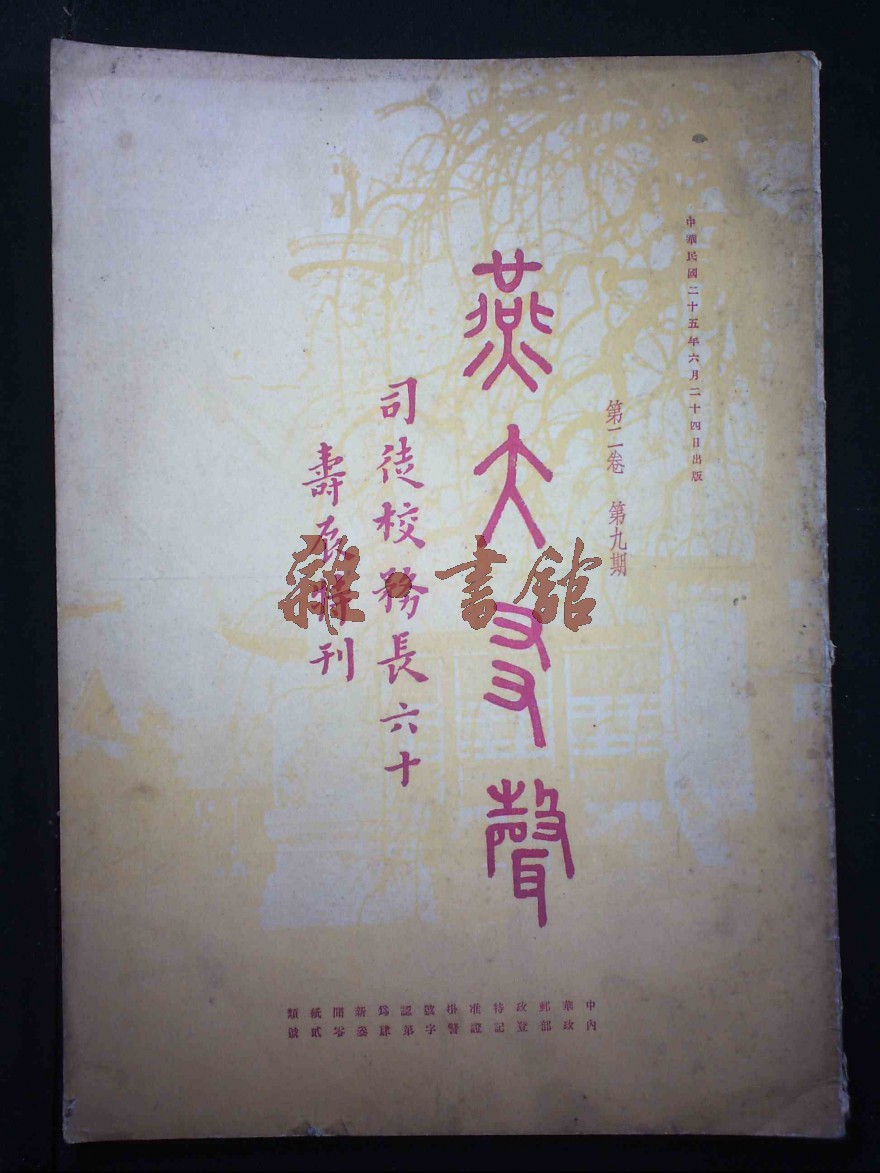 中華民國二十五年六月二十四日出版
第二卷 第九期
燕大友聲
司徒校務長六十
壽辰特刊
雜·書館
中華郵政特准掛號認爲新聞紙類
內政部登記證警字第肆叁零貳號